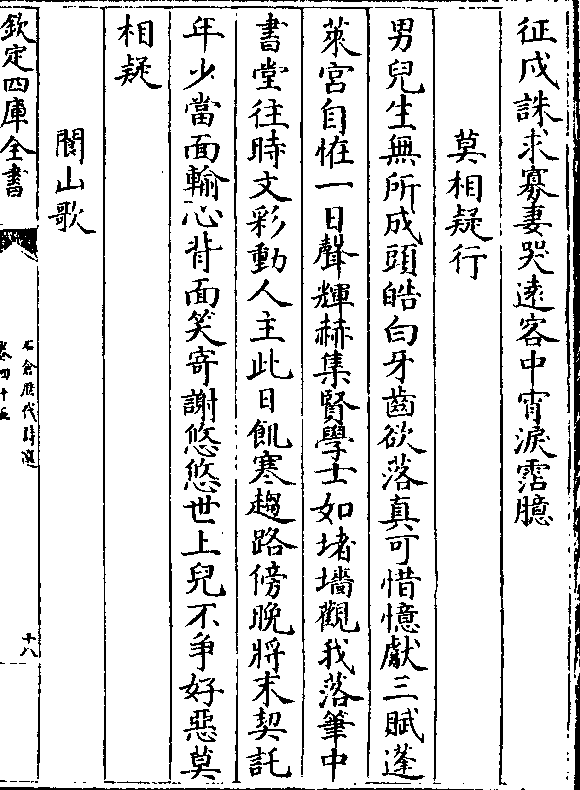 征戍誅求寡妻哭遠客中宵淚霑臆
莫相疑行
男兒生無所成頭皓白牙齒欲落真可惜憶獻三賦蓬
萊宮自怪一日聲輝赫集賢學士如堵墻觀我落筆中
書堂往時文彩動人主此日飢寒趨路傍晚將末契託
年少當面輸心背面笑寄謝悠悠世上兒不爭好惡莫
相疑
閬山歌
欽定四庫全書
石倉歷代詩選
卷四十五
十八